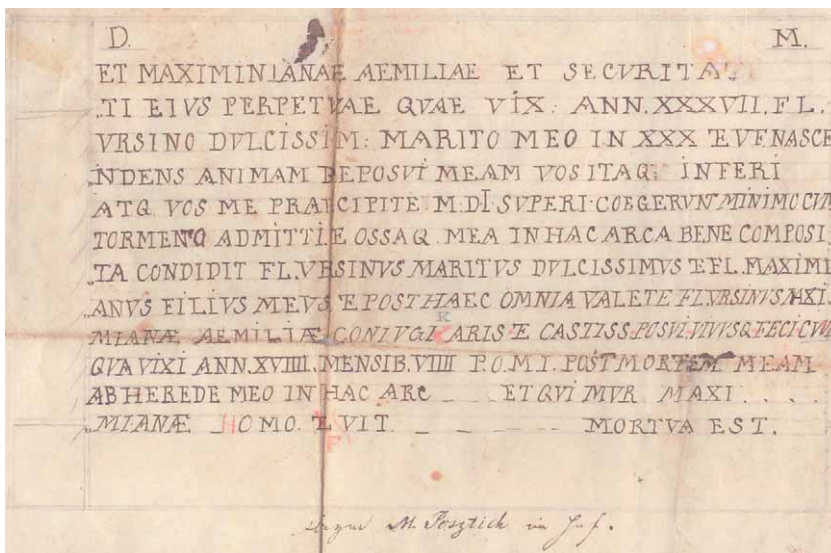 D. M.
ET MAXIMINIANAE AEMILIAE ET SECVRITA..
„TI EIVS PERPETVAE QVAE VIX: ANN. XXXVII. FL.
VRSINO DVLCISSIM: MARITO MEO IN XXX E VF. NASCE
„NDENS ANIMAM DEPOSVI MEAM VOS ITAQ: INFERI
ATQ VOS ME PRAECIPITE M. DI SVPERI. COEGERVNT MINIMO CVM
TORMENTO ADMITTI E OSSAQ. MEA IN HAC ARCA BENE COMPOSI
„TA CONDIDIT FL. VRSINVS MARITVS DVLCISSIMVS E FL. MAXIMI
„ANVS FILIVS MEVS E POST HAEC OMNIA VALETE FL VRSINVS MAXI.
„MIANÆ AEMILIÆ CONIVGI KARIS E CASTISS. POSVI. VIVVSQ. FECI CVM
QVA VIXI ANN. XVIIII. MENSIB. VIIII P. O. M. I. POST MORTEM MEAM
AB HEREDE MEO IN HAC ARC _ _ _ ET QVI MVR MAXI. . . .
„MIANÆ _ HOMO. VIT. _ _ _ MORTVA EST.
M. Pesztich